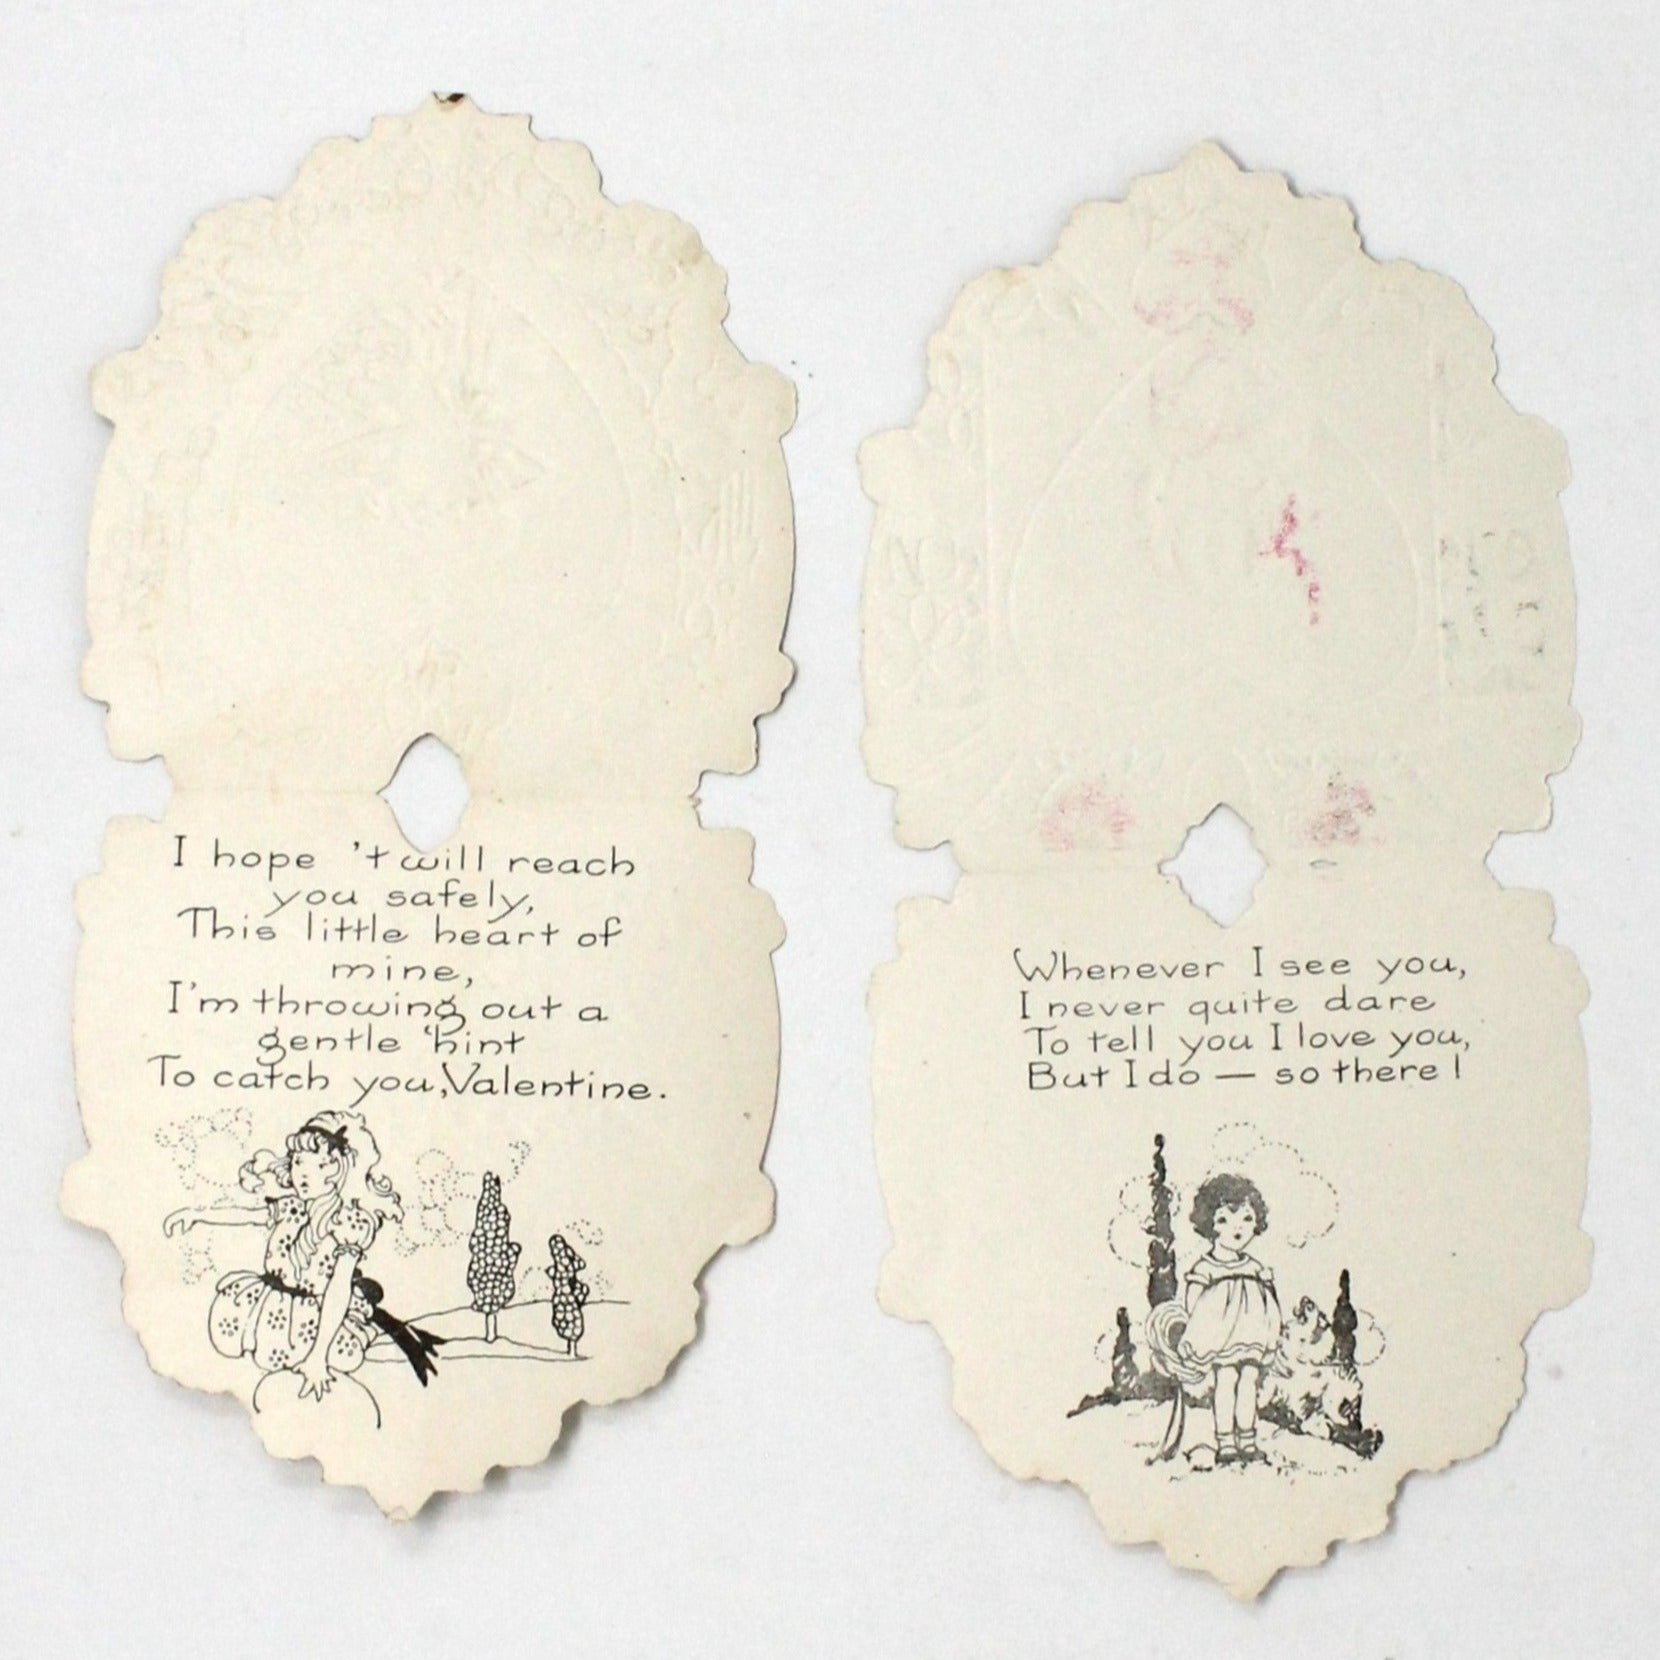 I hope 't will reach
you safely,
This little heart of
mine,
I'm throwing out a
gentle 'hint
To catch you, Valentine.
Whenever I see you,
I never quite dare
To tell you I love you,
But I do — so there!